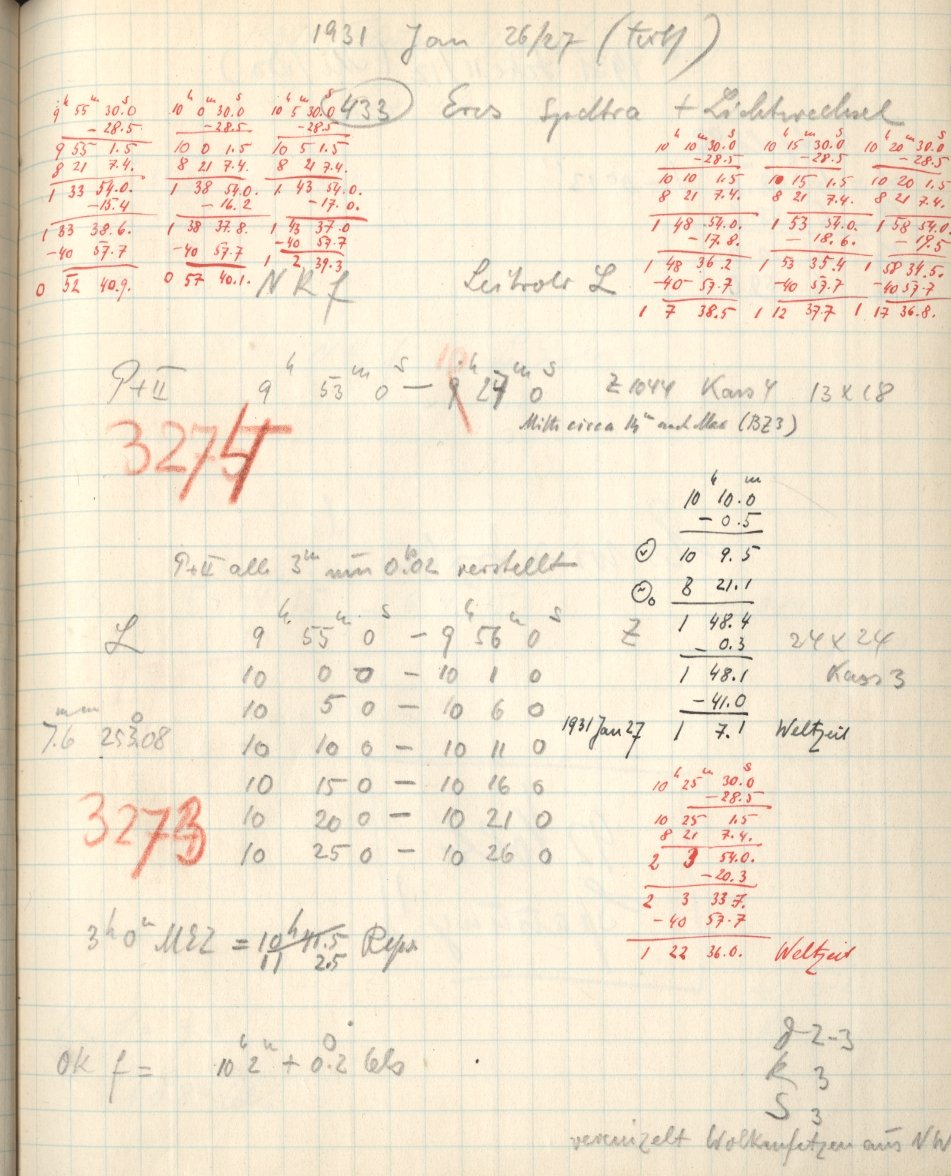 1931 Jan 26/27
433 Eros Spektra + Lichtwechsel
9h 55m 30.0s
-28.5
9 55 1.5
8 21 7.4.
1 33 54.0.
-15.4
1 33 38.6.
-40 57.7
0 52 40.9.
10h 0m 30.0s
-28.5
10 0 1.5
8 21 7.4.
1 38 54.0.
-16.2
1 38 37.8.
-40 57.7
0 57 40.1.
10h 5m 30.0s
-28.5
10 5 1.5
8 21 7.4.
1 43 54.0.
-17.0.
1 43 37.0
-40 57.7
1 2 39.3
10h 10m 30.0s
-28.5
10 10 1.5
8 21 7.4.
1 48 54.0.
-17.8.
1 48 36.2
-40 57.7
1 7 38.5
10h 15m 30.0s
-28.5
10 15 1.5
8 21 7.4.
1 53 54.0.
-18.6.
1 53 35.4
-40 57.7
1 12 37.7
10h 20m 30.0s
-28.5
10 20 1.5
8 21 7.4.
1 58 54.0.
-19.5
1 58 34.5.
-40 57.7
1 17 36.8.
N K f Leitrohr L
P+II 9h 53m 0s - 10h 27m 0s Z 1044 Kass 4 13 x 18
Mitte circa nach Max (BZ3)
327
10h 10.0m
- 0.5
10 9.5
8 21.1
1 48.4
- 0.3
1 48.1
-41.0
1931 Jan 27 1 7.1 Weltzeit
P+II alle 3m um 0.02 verstellt
L 9h 55m 0s - 9h 56m 0s Z 24 x 24
10 0 0 - 10 1 0 Kass 3
10 5 0 - 10 6 0
7.6mm 253.08 10 10 0 - 10 11 0
10 15 0 - 10 16 0
3273 10 20 0 - 10 21 0
10 25 0 - 10 26 0
10h 25m 30.0s
-28.5
10 25 1.5
8 21 7.4.
2 3 54.0.
-20.3
2 3 33 7.
-40 57.7
1 22 36.0. Weltzeit
3h0m MEZ = 10h 41.5 Reps
11 2.5
OK f = 10h 2m + 0.2
2-3
R 3
S 3
vereinzelt Wolkenfetzen aus NW